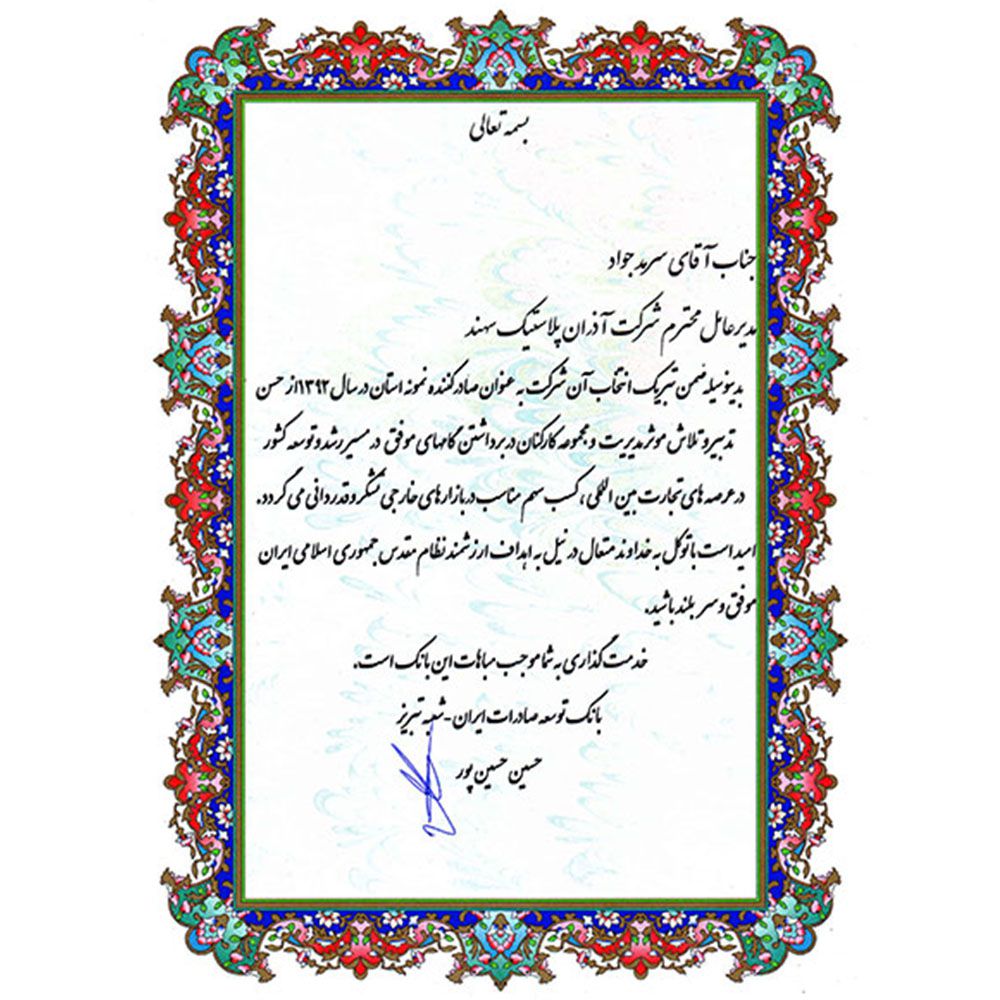 بسمه تعالی
جناب آقای سرمد جواد
مدیر عامل محترم شرکت آذران پلاستیک سهند
بدینوسیله ضمن تبریک انتخاب آن شرکت به عنوان صادرکننده نمونه استان در سال ۱۳۹۲ از حسن
تدبیر و تلاش موثر مدیریت و مجموعه کارکنان در برداشتن گامهای موفق در مسیر رشد و توسعه کشور
در عرصه های تجارت بین المللی ، کسب سهم مناسب در بازارهای خارجی تشکر و قدردانی می گردد.
امید است با توکل به خداوند متعال در نیل به اهداف ارزشمند نظام مقدس جمهوری اسلامی ایران
موفق و سر بلند باشید.
خدمت گذاری به شما موجب مباهات این بانک است.
بانک توسعه صادرات ایران - شعبه تبریز
حسین حسین پور